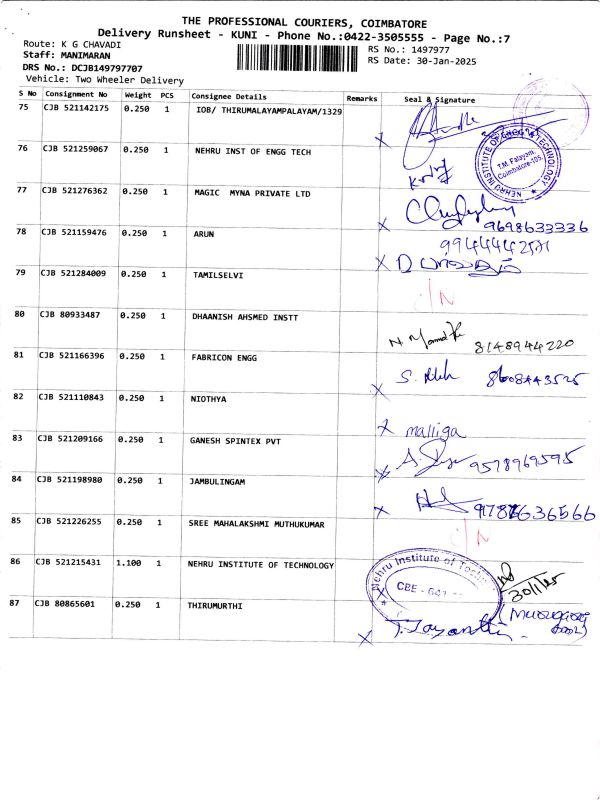 THE PROFESSIONAL COURIERS, COIMBATORE
Delivery Runsheet - KUNI - Phone No.:0422-3505555 - Page No.:7
Route: K G CHAVADI
RS No.: 1497977
Staff: MANIMARAN
RS Date: 30-Jan-2025
DRS No.: DCJB149797707
Vehicle: Two Wheeler Delivery
S No Consignment No Weight PCS Consignee Details Remarks Seal & Signature
75 CJB 521142175 0.250 1 IOB/ THIRUMALAYAMPALAYAM/1329
X
76 CJB 521259067 0.250 1 NEHRU INST OF ENGG TECH
NEHRU INSTITUTE OF ENGG & TECHNOLOGY
T.M. Palayam,
Coimbatore-105.
77 CJB 521276362 0.250 1 MAGIC MYNA PRIVATE LTD
X 9698633336
78 CJB 521159476 0.250 1 ARUN
X
79 CJB 521284009 0.250 1 TAMILSELVI
80 CJB 80933487 0.250 1 DHAANISH AHSMED INSTT
8148944220
81 CJB 521166396 0.250 1 FABRICON ENGG
X 8608443525
82 CJB 521110843 0.250 1 NIOTHYA
X malliga
83 CJB 521209166 0.250 1 GANESH SPINTEX PVT
X 9578969595
84 CJB 521198980 0.250 1 JAMBULINGAM
X
85 CJB 521226255 0.250 1 SREE MAHALAKSHMI MUTHUKUMAR
86 CJB 521215431 1.100 1 NEHRU INSTITUTE OF TECHNOLOGY
Nehru Institute of
CBE - 641
30/1/25
87 CJB 80865601 0.250 1 THIRUMURTHI
X T. Jayanthi